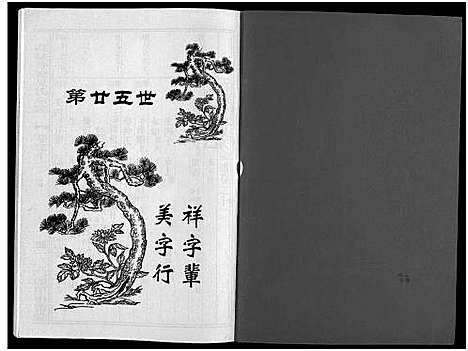 第廿五世
祥字輩
美字行